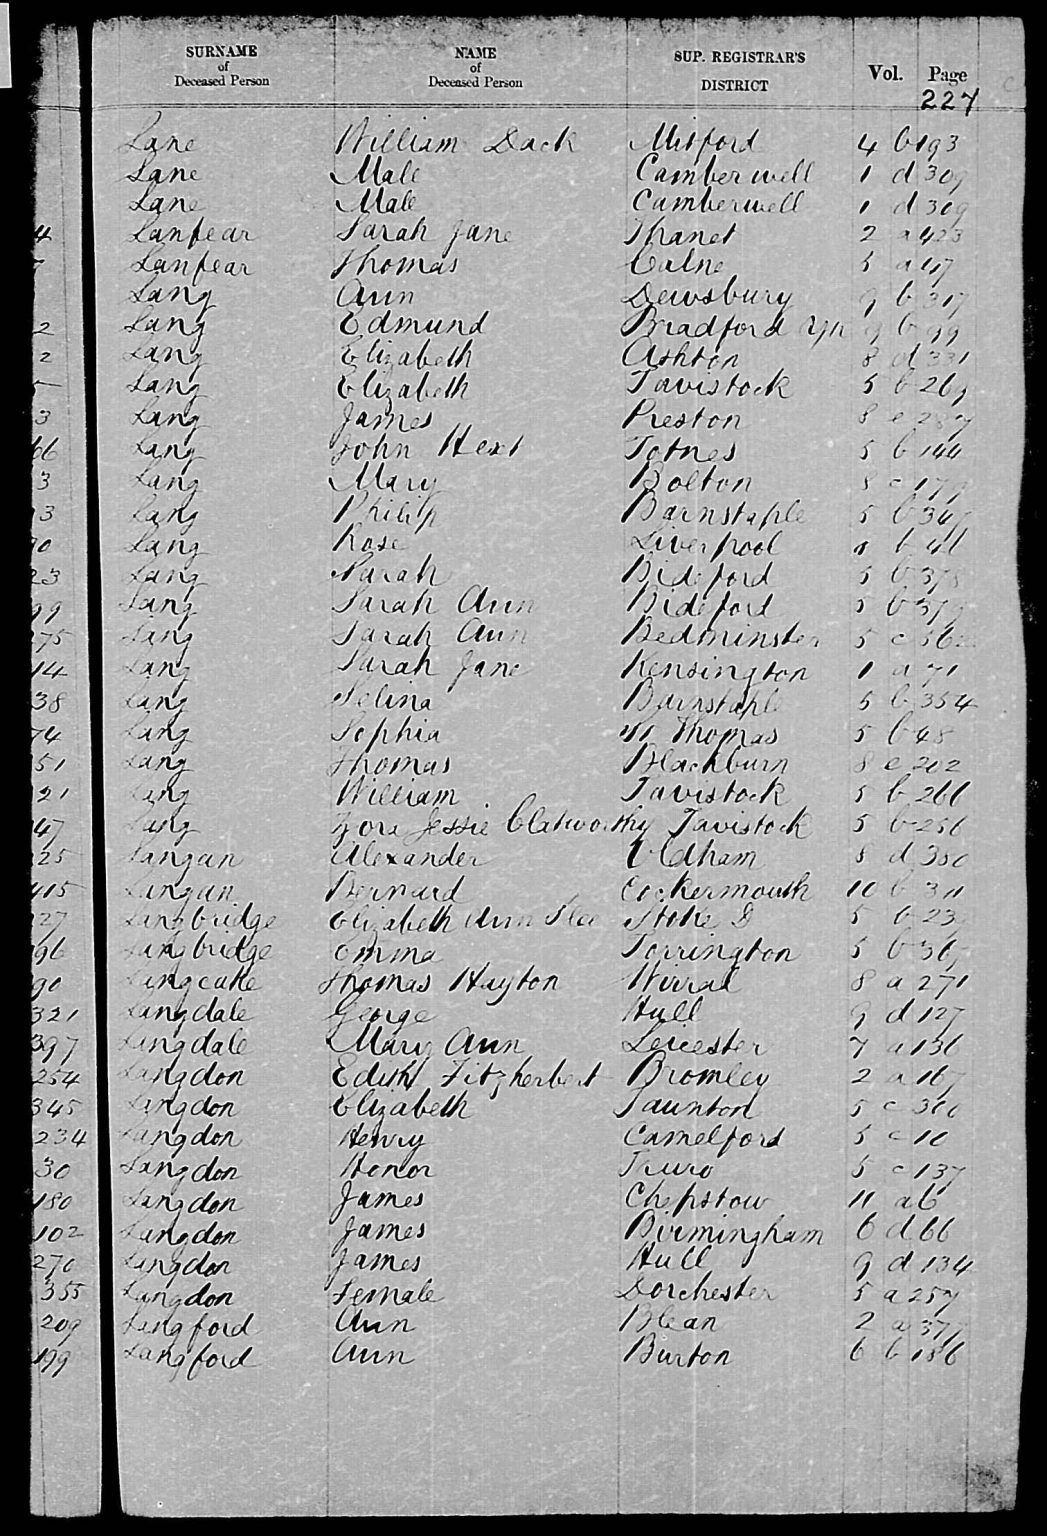 SURNAME of Deceased Person NAME of Deceased Person SUP. REGISTRAR'S DISTRICT Vol. Page
227
Lane William Dack Mitford 4 b 193
Lane Male Camberwell 1 d 309
Lane Male Camberwell 1 d 309
4 Lanfear Sarah Jane Thanet 2 a 423
7 Lanfear Thomas Calne 5 a 47
Lang Ann Dewsbury 9 b 317
2 Lang Edmund Bradford Yk 9 b 99
2 Lang Elizabeth Ashton 8 d 331
5 Lang Elizabeth Tavistock 5 b 269
3 Lang James Preston 8 e
66 Lang John Hext Totnes 5 b 144
3 Lang Mary Bolton 8 c 179
3 Lang Philip Barnstaple 5 b
90 Lang Rose Liverpool 8 b
23 Lang Sarah Bideford 5 b 378
99 Lang Sarah Ann Bideford 5 b 379
75 Lang Sarah Ann Bedminster 5 c 562
14 Lang Sarah Jane Kensington 1 a 71
38 Lang Selina Barnstaple 5 b 354
74 Lang Sophia St Thomas 5 b 48
51 Lang Thomas Blackburn 8 e 202
21 Lang William Tavistock 5 b 266
47 Lang Zora Jessie Clatworthy Tavistock 5 b 256
25 Langan Alexander Oldham 8 d 380
415 Langan Bernard Cockermouth 10 b 311
27 Langbridge Elizabeth Ann Stoke D 5 b 23
96 Langbridge Emma Torrington 5 b 367
90 Langcake Thomas Hayton Wirral 8 a 271
321 Langdale George Hull 9 d 127
397 Langdale Mary Ann Leicester 7 a 136
254 Langdon Edith Fitzherbert Bromley 2 a 167
345 Langdon Elizabeth Taunton 5 c
234 Langdon Henry Camelford 5 c 10
30 Langdon Honor Truro 5 c 137
180 Langdon James Chepstow 11 a 6
102 Langdon James Birmingham 6 d 66
270 Langdon James Hull 9 d 134
355 Langdon Female Dorchester 5 a 257
209 Langford Ann Blean 2 a 377
199 Langford Ann Burton 6 b 186